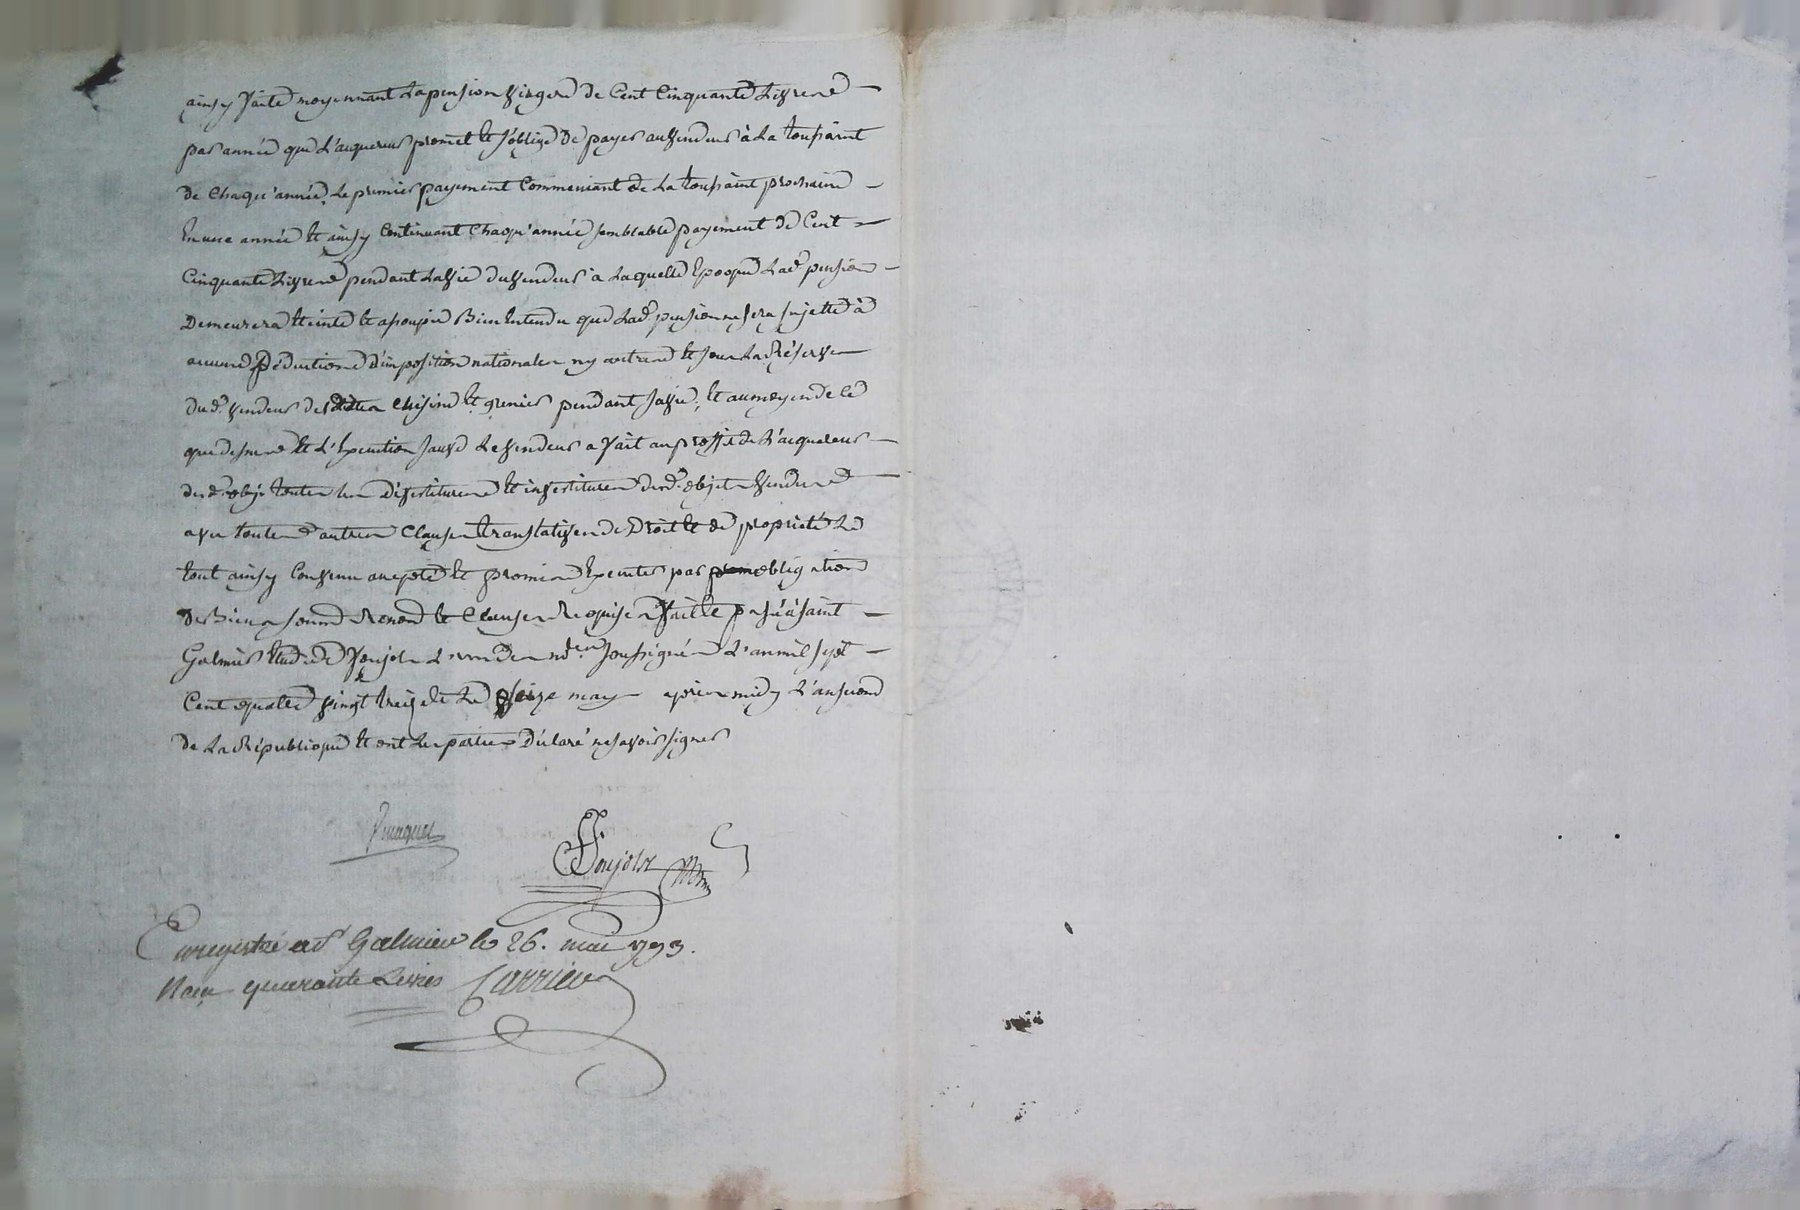 ainsy faite moyennant La pension viagere de Cent Cinquante Livres
par année que L'acquereur promet et s'oblige de payer au vendeur à La toussaint
de Chaqu'année, Le premier payement Commencant de La toussaint prochaine
En une année et ainsy Continuant Chaqu'année semblable payement de Cent
Cinquante Livres pendant La vie du vendeur à Laquelle Epoque Lad.e pension
Demeurera Eteinte et assoupie Bien Entendu que Lad.e pension ne sera sujette à
aucune Déductions d'imposition nationales ny autres et sous La Réserve
dud.t vendeur des Cuisine et grenier pendant sa vie, et au moyen de Ce
que dessus et L'Execution sauve Le vendeur a fait au profit de L'acquereur
toutes Les Dévestitures et investitures desd.ts objets vendus
avec toutes autres Clauses translatives de Droit et de propriété Le
tout ainsy Convenu accepté et promis Executer par obligation
de Biens soumis Renon et Clauses Requises fait et passé à saint
Galmier Etude de L'un des no.res soussignés L'an mil sept
Cent quatre vingt treize et Le seize may après midy L'an second
de La République et ont Les parties Déclaré ne savoir signer
Enregistré à St Galmier le 26. mai 1793.
Reçu quarante Livres